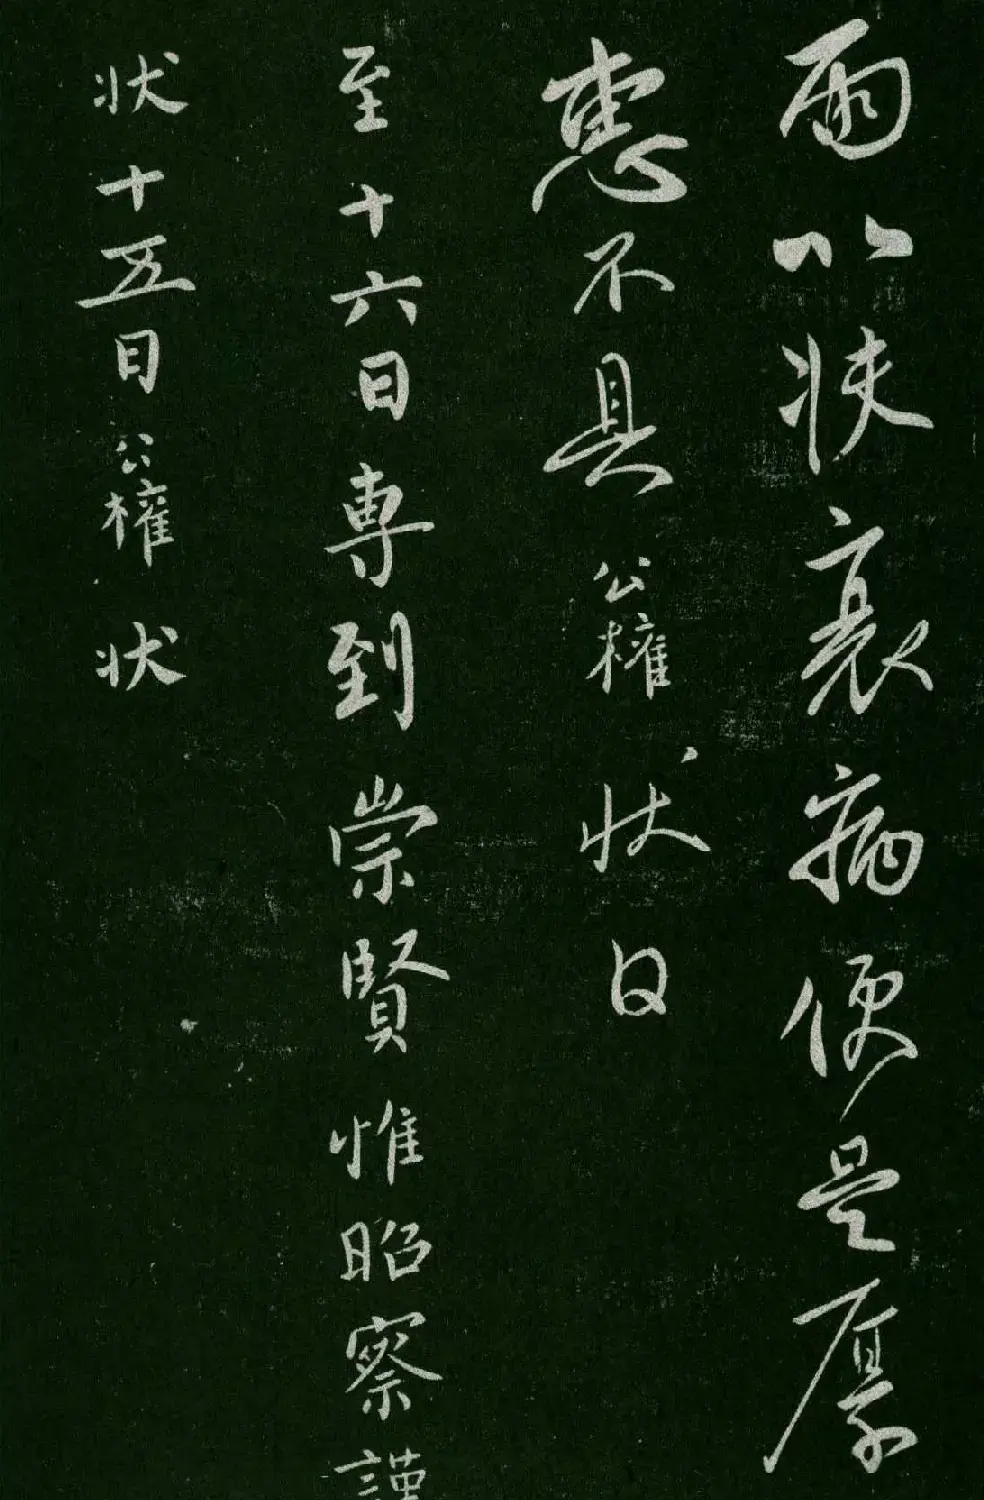 雨以状衰病便是厚
惠不具公權状日
至十六日專到崇賢惟昭察謹
状十五日公權状